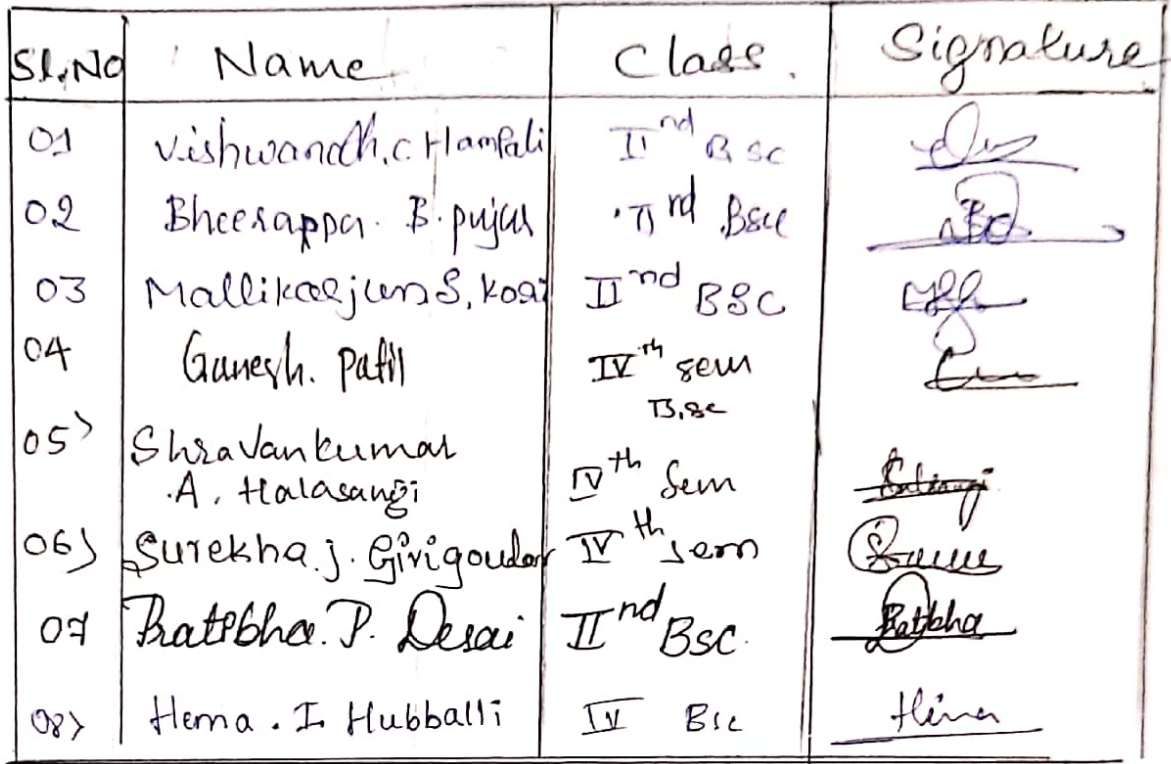 Sl.No Name Class. Signature
01 Vishwanath.C. Hampali II nd B sc
02 Bheerappa. B. pujar II rd Bsc
03 Mallikarjun S, Kori II nd BSC
04 Ganesh. Patil IV th sem
B.sc
05) Shravankumar
.A. Halasangi IV th Sem
06) Surekha.j. Girigoudar IV th sem
07 Pratibha. P. Desai II nd Bsc. Pratibha
08) Hema. I. Hubballi IV Bsc Hema